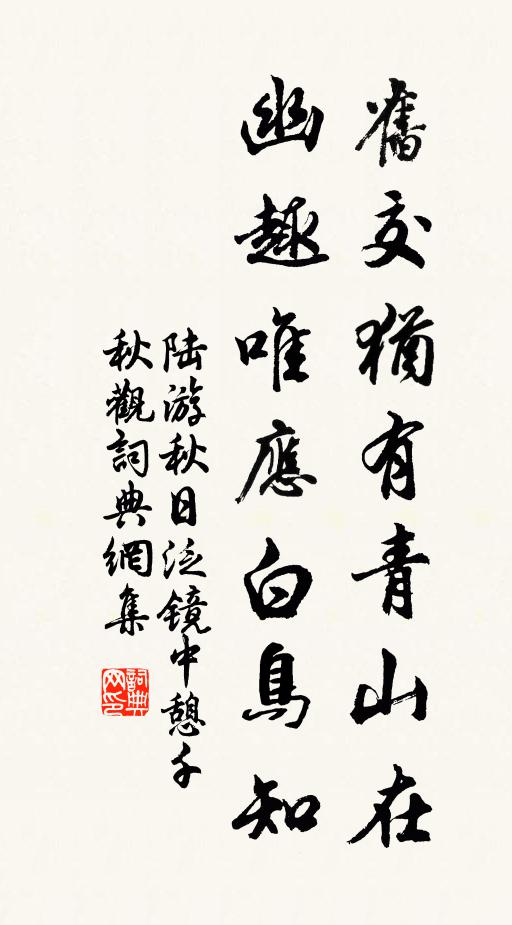 舊交猶有青山在
幽趣唯應白鳥知
陆游秋日泛镜中憩千
秋觀詞典網集
詞典网印